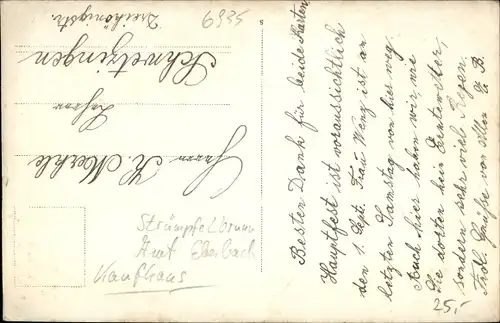 Herrn K. Merkle
Lehrer
Schwetzingen
Dreikönigstr.
6935
Besten Dank für beide Karten.
Hauptfest ist voraussichtlich
den 1. Sept. Frau Weng ist am
letzten Samstag von hier weg.
Auch hier haben wir, wie
Sie dorten kein Erntewetter,
sondern sehr viel Regen.
Frdl. Grüße von Allen
Strümpfelbrunn
Amt Eberbach
Kaufhaus
25,-